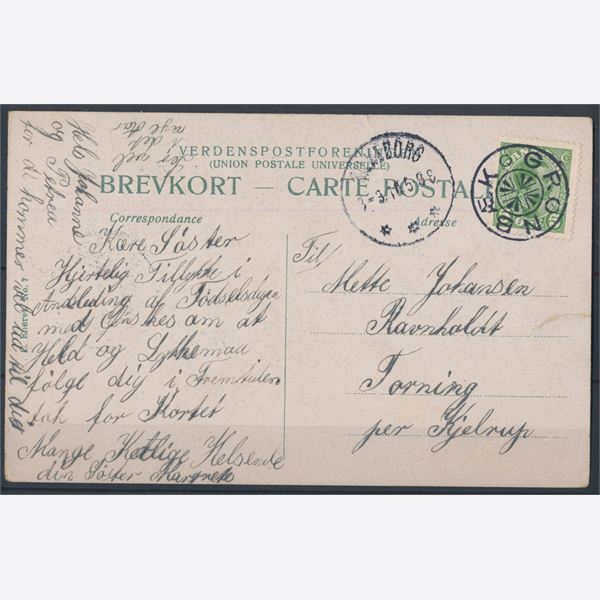 VERDENSPOSTFORENINGEN
(UNION POSTALE UNIVERSELLE)
BREVKORT — CARTE POSTALE
Correspondance
Adresse
Kære Søster
Hjertelig Tillykke i
Andledning af Fødselsdagen
med Ønskes om at
Held og Lykke maa
følge dig i Fremtiden
tak for Kortet
Mange Kærlige Helsende
din Søster
Hels Johanne
og Petrea
for de kommer
til dig
Til
Mette Johansen
Ravnholdt
Torning
per Kjelrup
GRØNBÆK